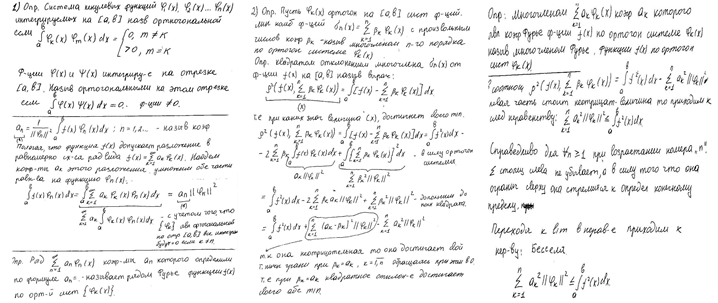 1) Опр. Система ненулевых функций φ₁(x), φ₂(x)... φₙ(x)
интегрируемых на [a,b] назв ортогональной
если ∫ₐᵇ φₖ(x) φₘ(x) dx = {0, m≠k
>0, m=k
Ф-ции φ(x) и ψ(x) интегрир-е на отрезке
[a,b]. Назыв ортогональными на этом отрезке
если ∫ₐᵇ φ(x) ψ(x) dx = 0. ф-ции ≠0.
aₙ = 1/||φₙ||² ∫ₐᵇ f(x) φₙ(x) dx; n=1,2... - назыв коэф
что функция f(x) допускает разложение в
равномерно сх-ся ряд вида f(x) = Σ aₖ φₖ(x). Найдём
коэф-ты aₖ этого разложения, умножение обе части
рав-ва на функцию φₙ(x).
∫ₐᵇ f(x) φₙ(x) dx = ∫ₐᵇ Σ aₖ φₖ(x) φₙ(x) dx = aₙ ||φₙ||²
Σ aₖ ∫ₐᵇ φₖ(x) φₙ(x) dx - с учетом того что
{φₖ} явл ортогональной
на отр [a,b] все интегр
будут =0 если k≠n
Опр. Ряд Σ aₙ φₙ(x) коэф-ты aₙ которого определены
по формуле aₙ=... называется рядом Фурье функции f(x)
по орт-й сист {φₖ(x)}
2) Опр. Пусть φₖ(x) ортогон на [a,b] сист ф-ций.
ф-ций σₙ(x) = Σ βₖ φₖ(x) с произвольным
числом коэф βₖ - назыв многочленом n-го порядка
по ортогон системе φₖ(x)
Опр. Квадратом отклонения многочлена σₙ(x) от
ф-ции f(x) на [a,b] назыв выраж:
ρ²(f(x), Σ βₖ φₖ(x)) = ∫ₐᵇ [f(x) - Σ βₖ φₖ(x)]² dx
(x)
величина (x), достигнет своего min.
ρ²(f(x), Σ βₖ φₖ(x)) = ∫ₐᵇ [f(x) - Σ βₖ φₖ(x)]² dx = ∫ₐᵇ f²(x) dx -
- 2 Σ βₖ ∫ₐᵇ f(x) φₖ(x) dx + ∫ₐᵇ [Σ βₖ φₖ(x)]² dx = в силу ортогон
системы
aₖ ||φₖ||² Σ βₖ² ||φₖ||²
= ∫ₐᵇ f²(x) dx - 2 Σ βₖ aₖ ||φₖ||² + Σ βₖ² ||φₖ||² = дополним до
квадрата
= ∫ₐᵇ f²(x) dx + Σ (aₖ - βₖ)² ||φₖ||² - Σ aₖ² ||φₖ||²
т.к она неотрицательна то она достигает свой
при βₖ = aₖ, k=1,n обращаясь при этом в 0
т.е при βₖ = aₖ квадратное отклон-е достигает
своего min
Опр: Многочлен Σ aₖ φₖ(x) коэф aₖ которого
явл коэф Фурье ф-ции f(x) по ортогон системе φₖ(x)
назыв многочленом Фурье. Функции f(x) по ортогон
сист φₖ(x)
ρ²(f(x), Σ aₖ φₖ(x)) = ∫ₐᵇ f²(x) dx - Σ aₖ² ||φₖ||²
часть стоит неотрицат величина то приходим к
неравенству: Σ aₖ² ||φₖ||² ≤ ∫ₐᵇ f²(x) dx
Справедливо для ∀n ≥ 1 при возрастании номера "n"
слева не убывает, а в силу того что она
огранич сверху она стремился к определ конечному
пределу.
Переходя к в нерав-е приходим к
нер-ву: Бесселя
Σ aₖ² ||φₖ||² ≤ ∫ₐᵇ f²(x) dx